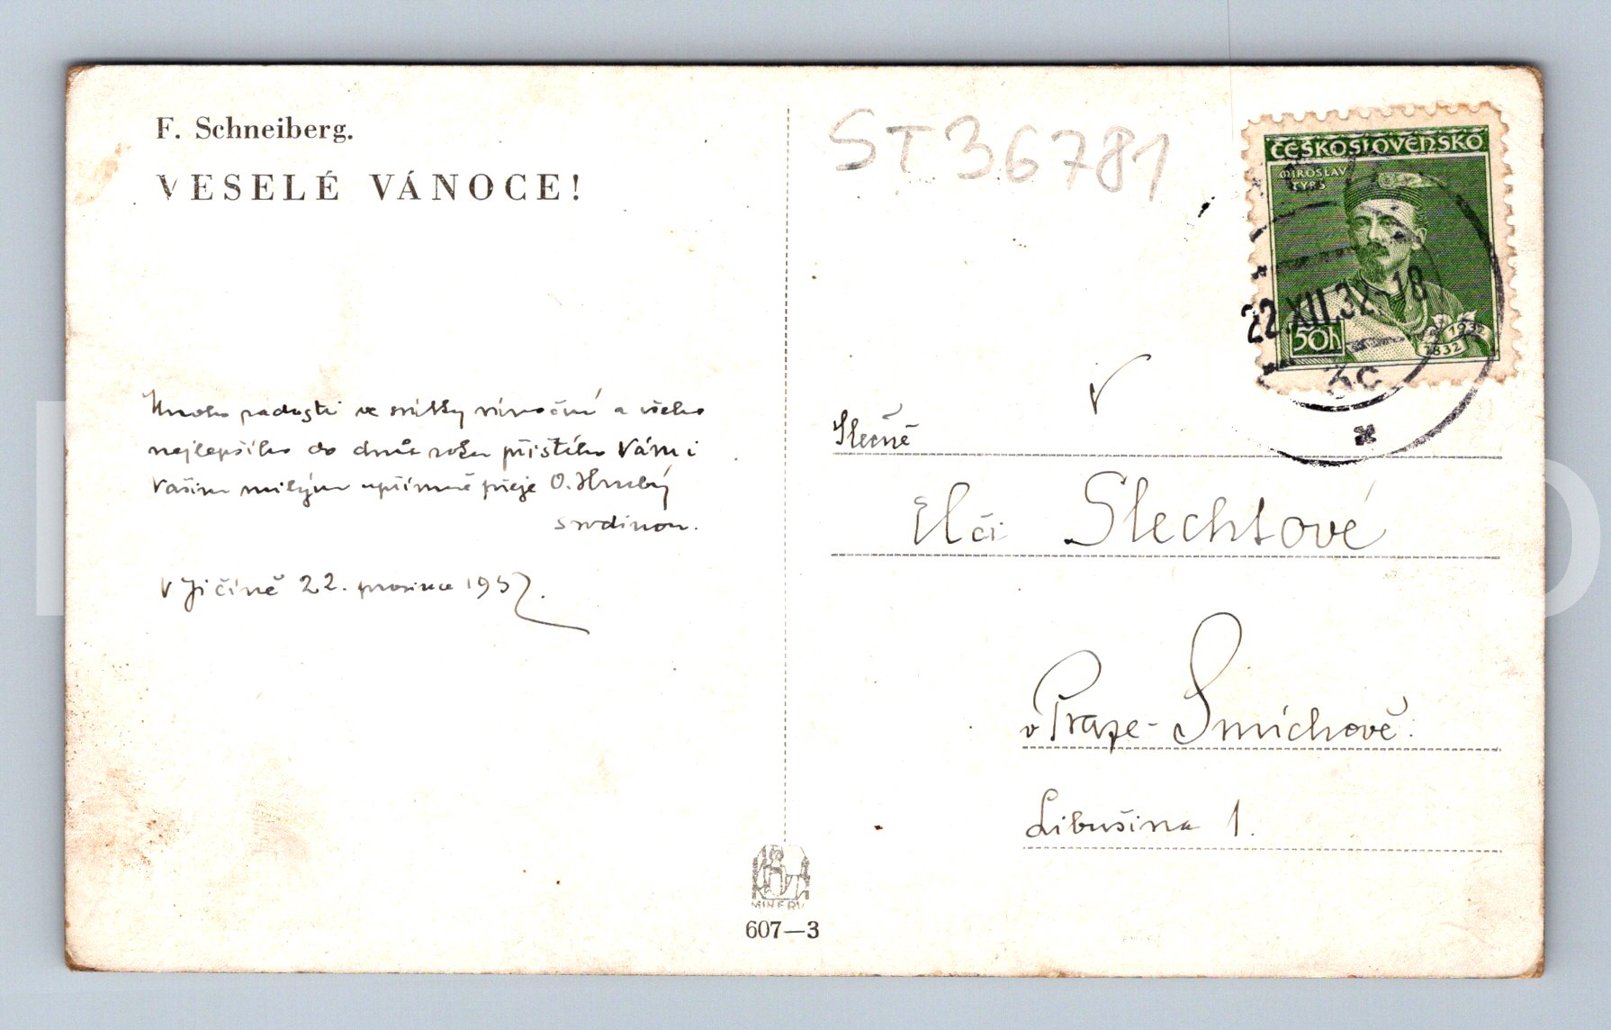 F. Schneiberg.
VESELÉ VÁNOCE!
Mnoho radosti ve svátky vánoční a všeho
nejlepšího do dnův roku příštího Vám i
Vašim milým upřímně přeje O. Hrubý
s rodinou.
V Jičíně 22. prosince 1932.
ST36781
ČESKOSLOVENSKO
MIROSLAV
TYRŠ
50h
1832
1932
22.XII.32-18
Slečně
Elči Šlechtové
v Praze-Smíchově.
Libušina 1.
MINERV
607—3